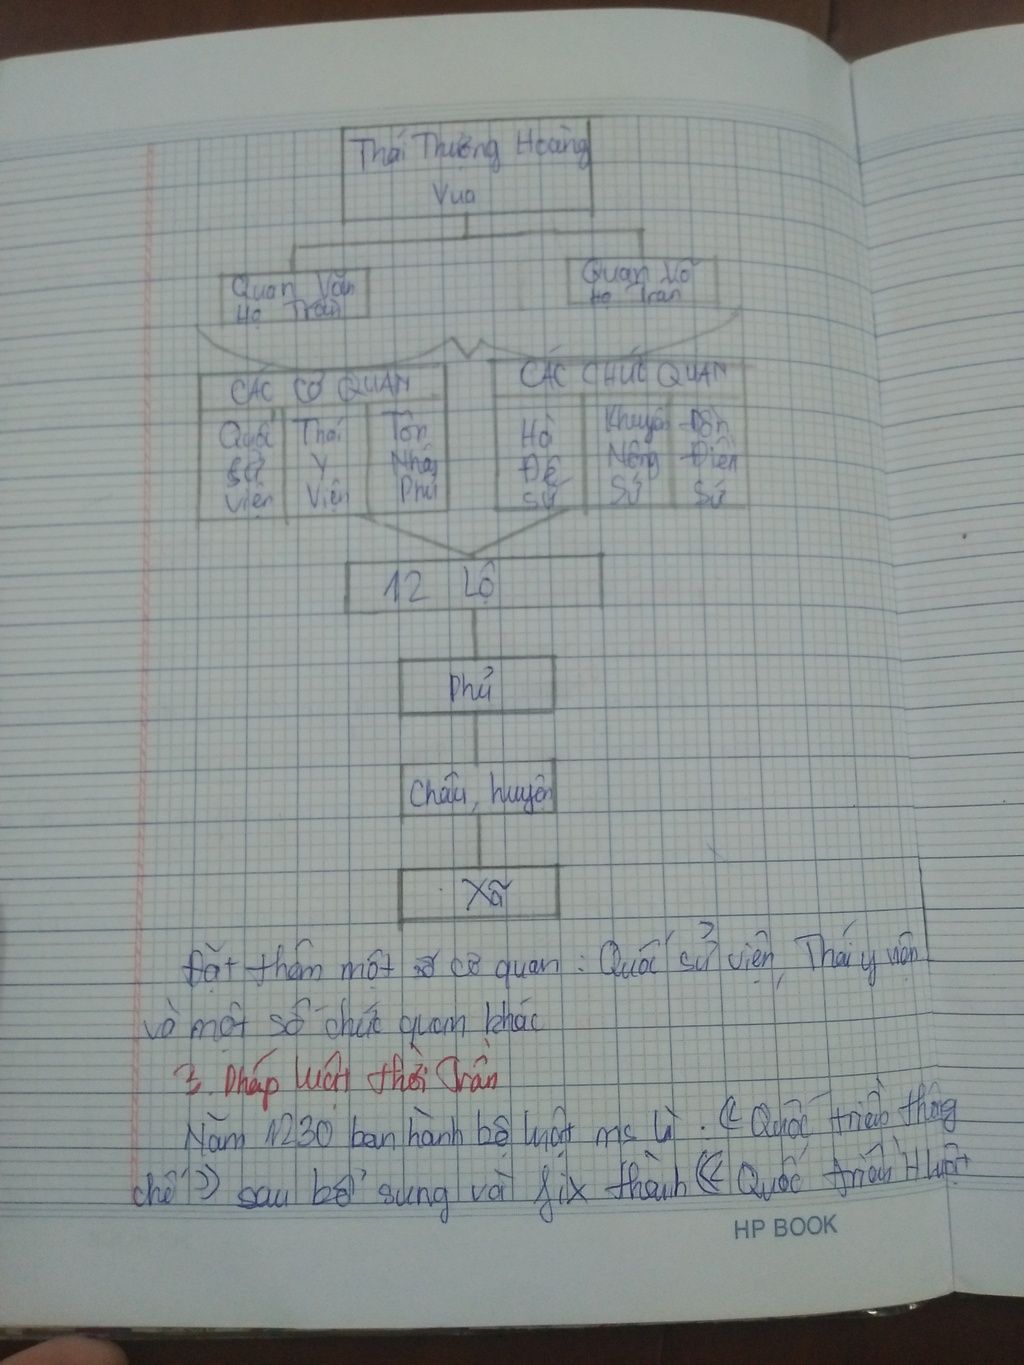 Thái Thượng Hoàng
Vua
Quan Văn
Họ Trần
Quan Võ
Họ Trần
CÁC CƠ QUAN
Quốc
Sử
Viện
Thái
Y
Viện
Tôn
Nhân
Phủ
CÁC CHỨC QUAN
Hà
Đê
Sứ
Khuyến
Nông
Sứ
Đồn
Điền
Sứ
12 Lộ
Phủ
Châu, huyện
Xã
Đặt thêm một số cơ quan: Quốc sử viện, Thái y viện
và một số chức quan khác
3. Pháp luật thời Trần
Năm 1230 ban hành bộ luật ms là: « Quốc triều thông
chế » sau bổ sung và fix thành « Quốc triều H luật
HP BOOK